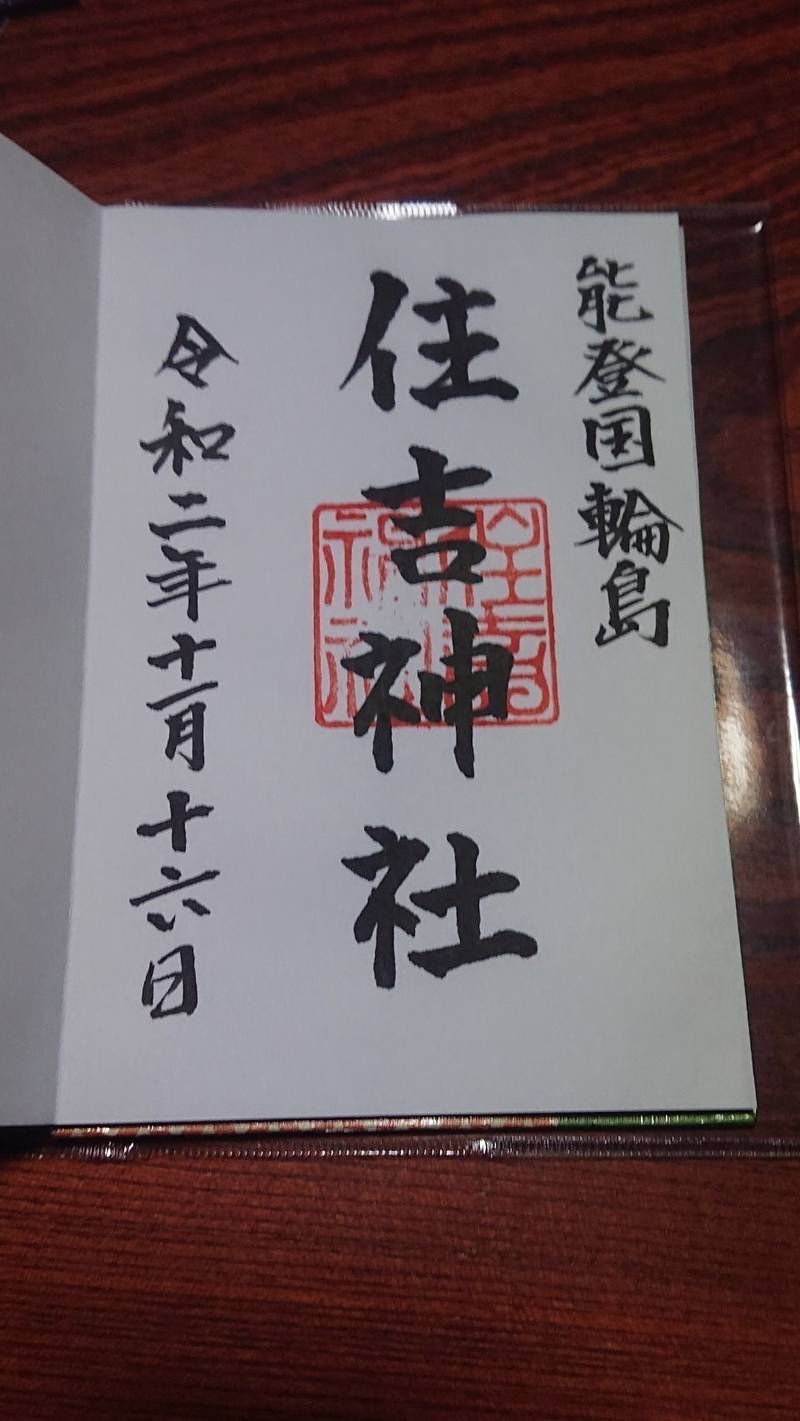 能登国輪島
住吉神社
令和二年十一月十六日